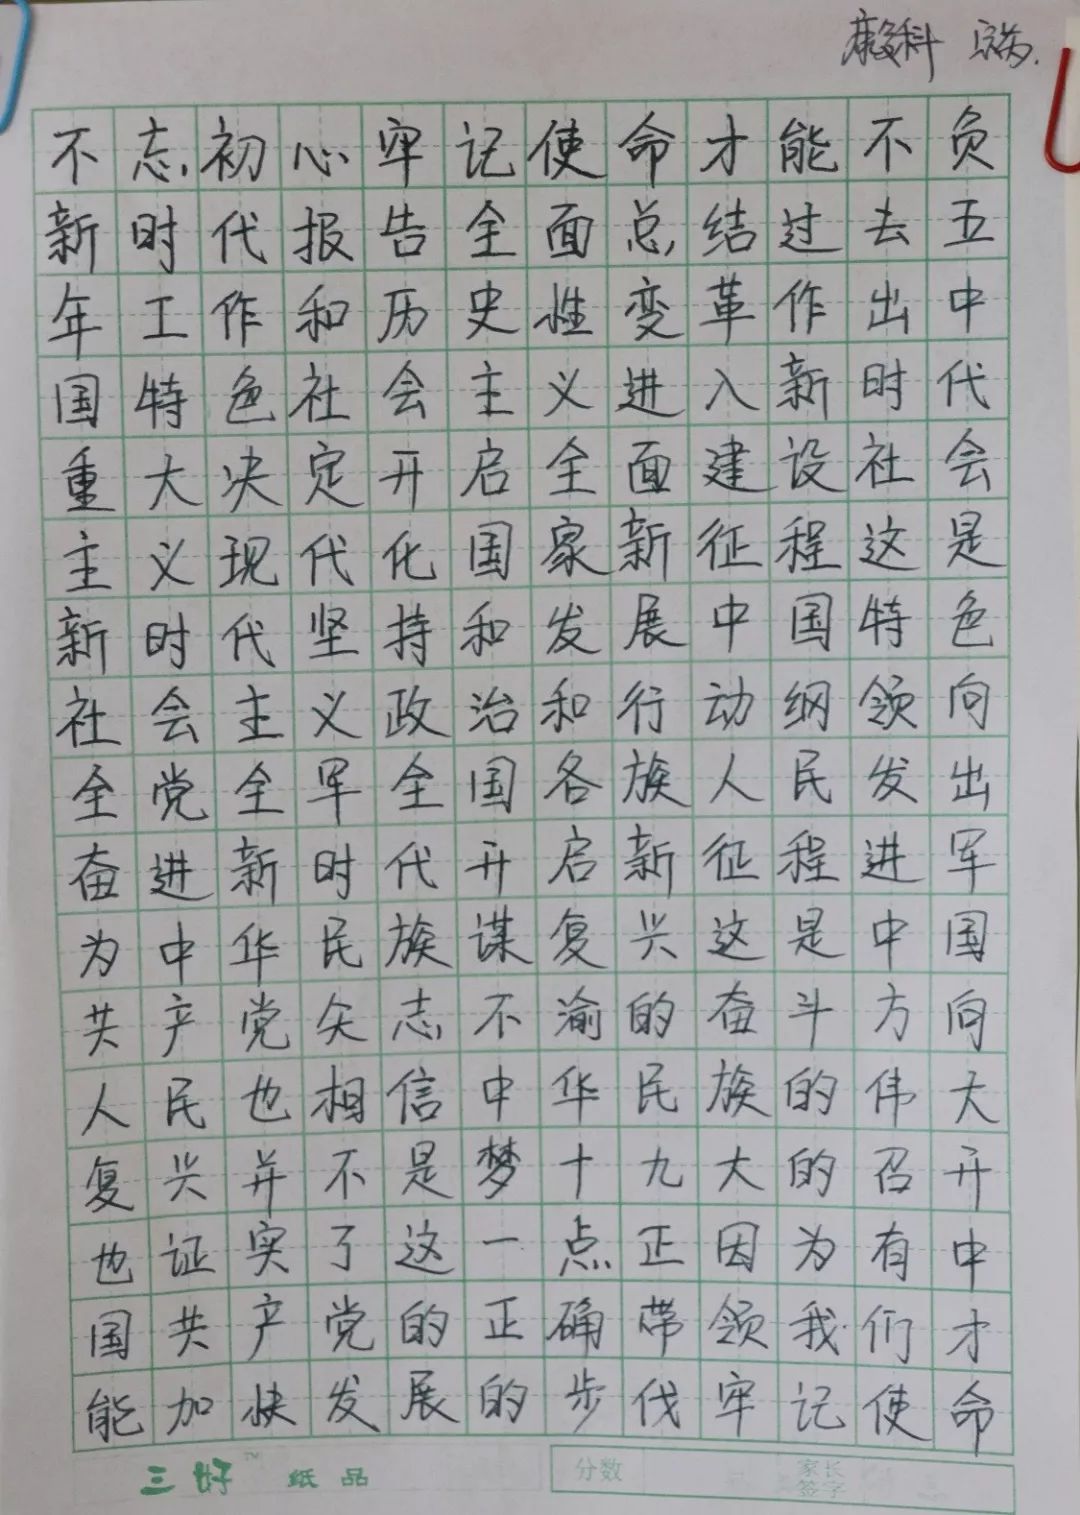 不忘初心牢记使命才能不负
新时代报告全面总结过去五
年工作和历史性变革作出中
国特色社会主义进入新时代
重大决定开启全面建设社会
主义现代化国家新征程这是
新时代坚持和发展中国特色
社会主义政治和行动纲领向
全党全军全国各族人民发出
奋进新时代开启新征程进军
为中华民族谋复兴这是中国
共产党矢志不渝的奋斗方向
人民也相信中华民族的伟大
复兴并不是梦十九大的召开
也证实了这一点正因为有中
国共产党的正确带领我们才
能加快发展的步伐牢记使命
三好™ 纸品 分数 家长签字